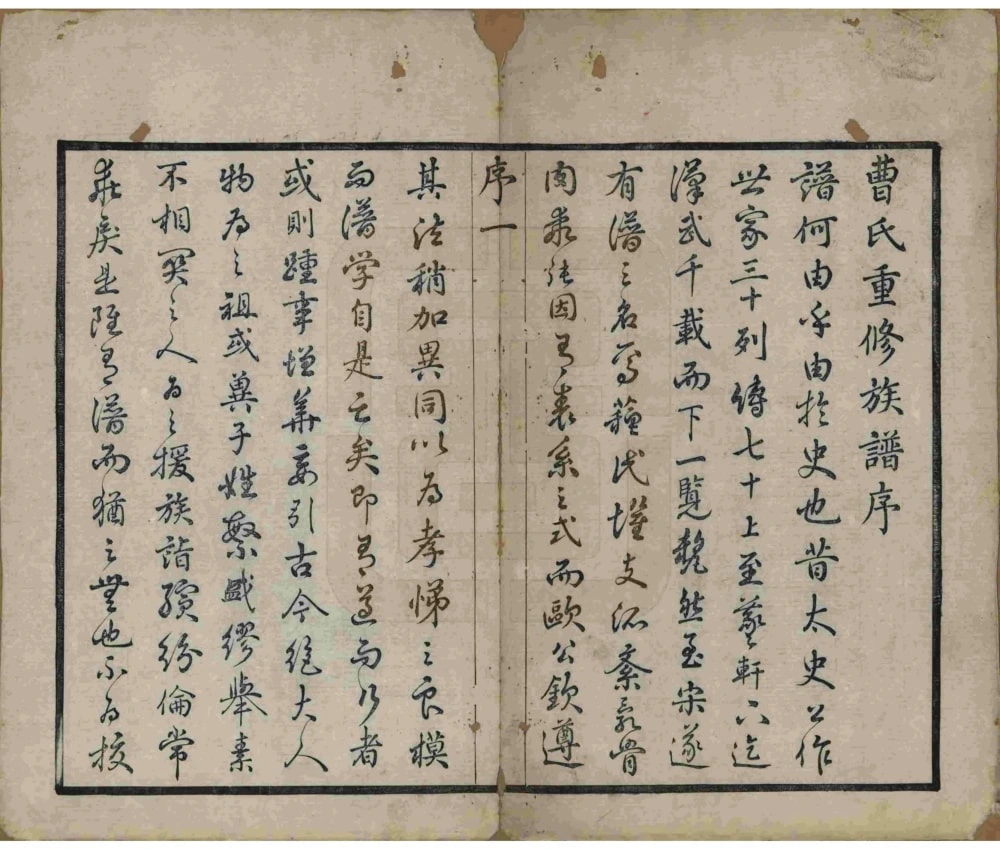 曹氏重修族譜序
譜何由乎由於史也昔太史公作
世家三十列傳七十上至羲軒下迄
漢武千載而下一覽瞭然至宋遂
有譜之名焉蘓氏 支派紊亂骨
因 因有表系之式而歐公欽遵
序一
其法稍加異同以為孝悌之良模
而譜学自是亡矣即有遵而行者
或則踵事增華妄引古今絕大人
物為之祖或冀子姓繁盛繆舉素
不相関之人為之援族詣 紛倫常
乖戾是雖有譜而猶之無也不為